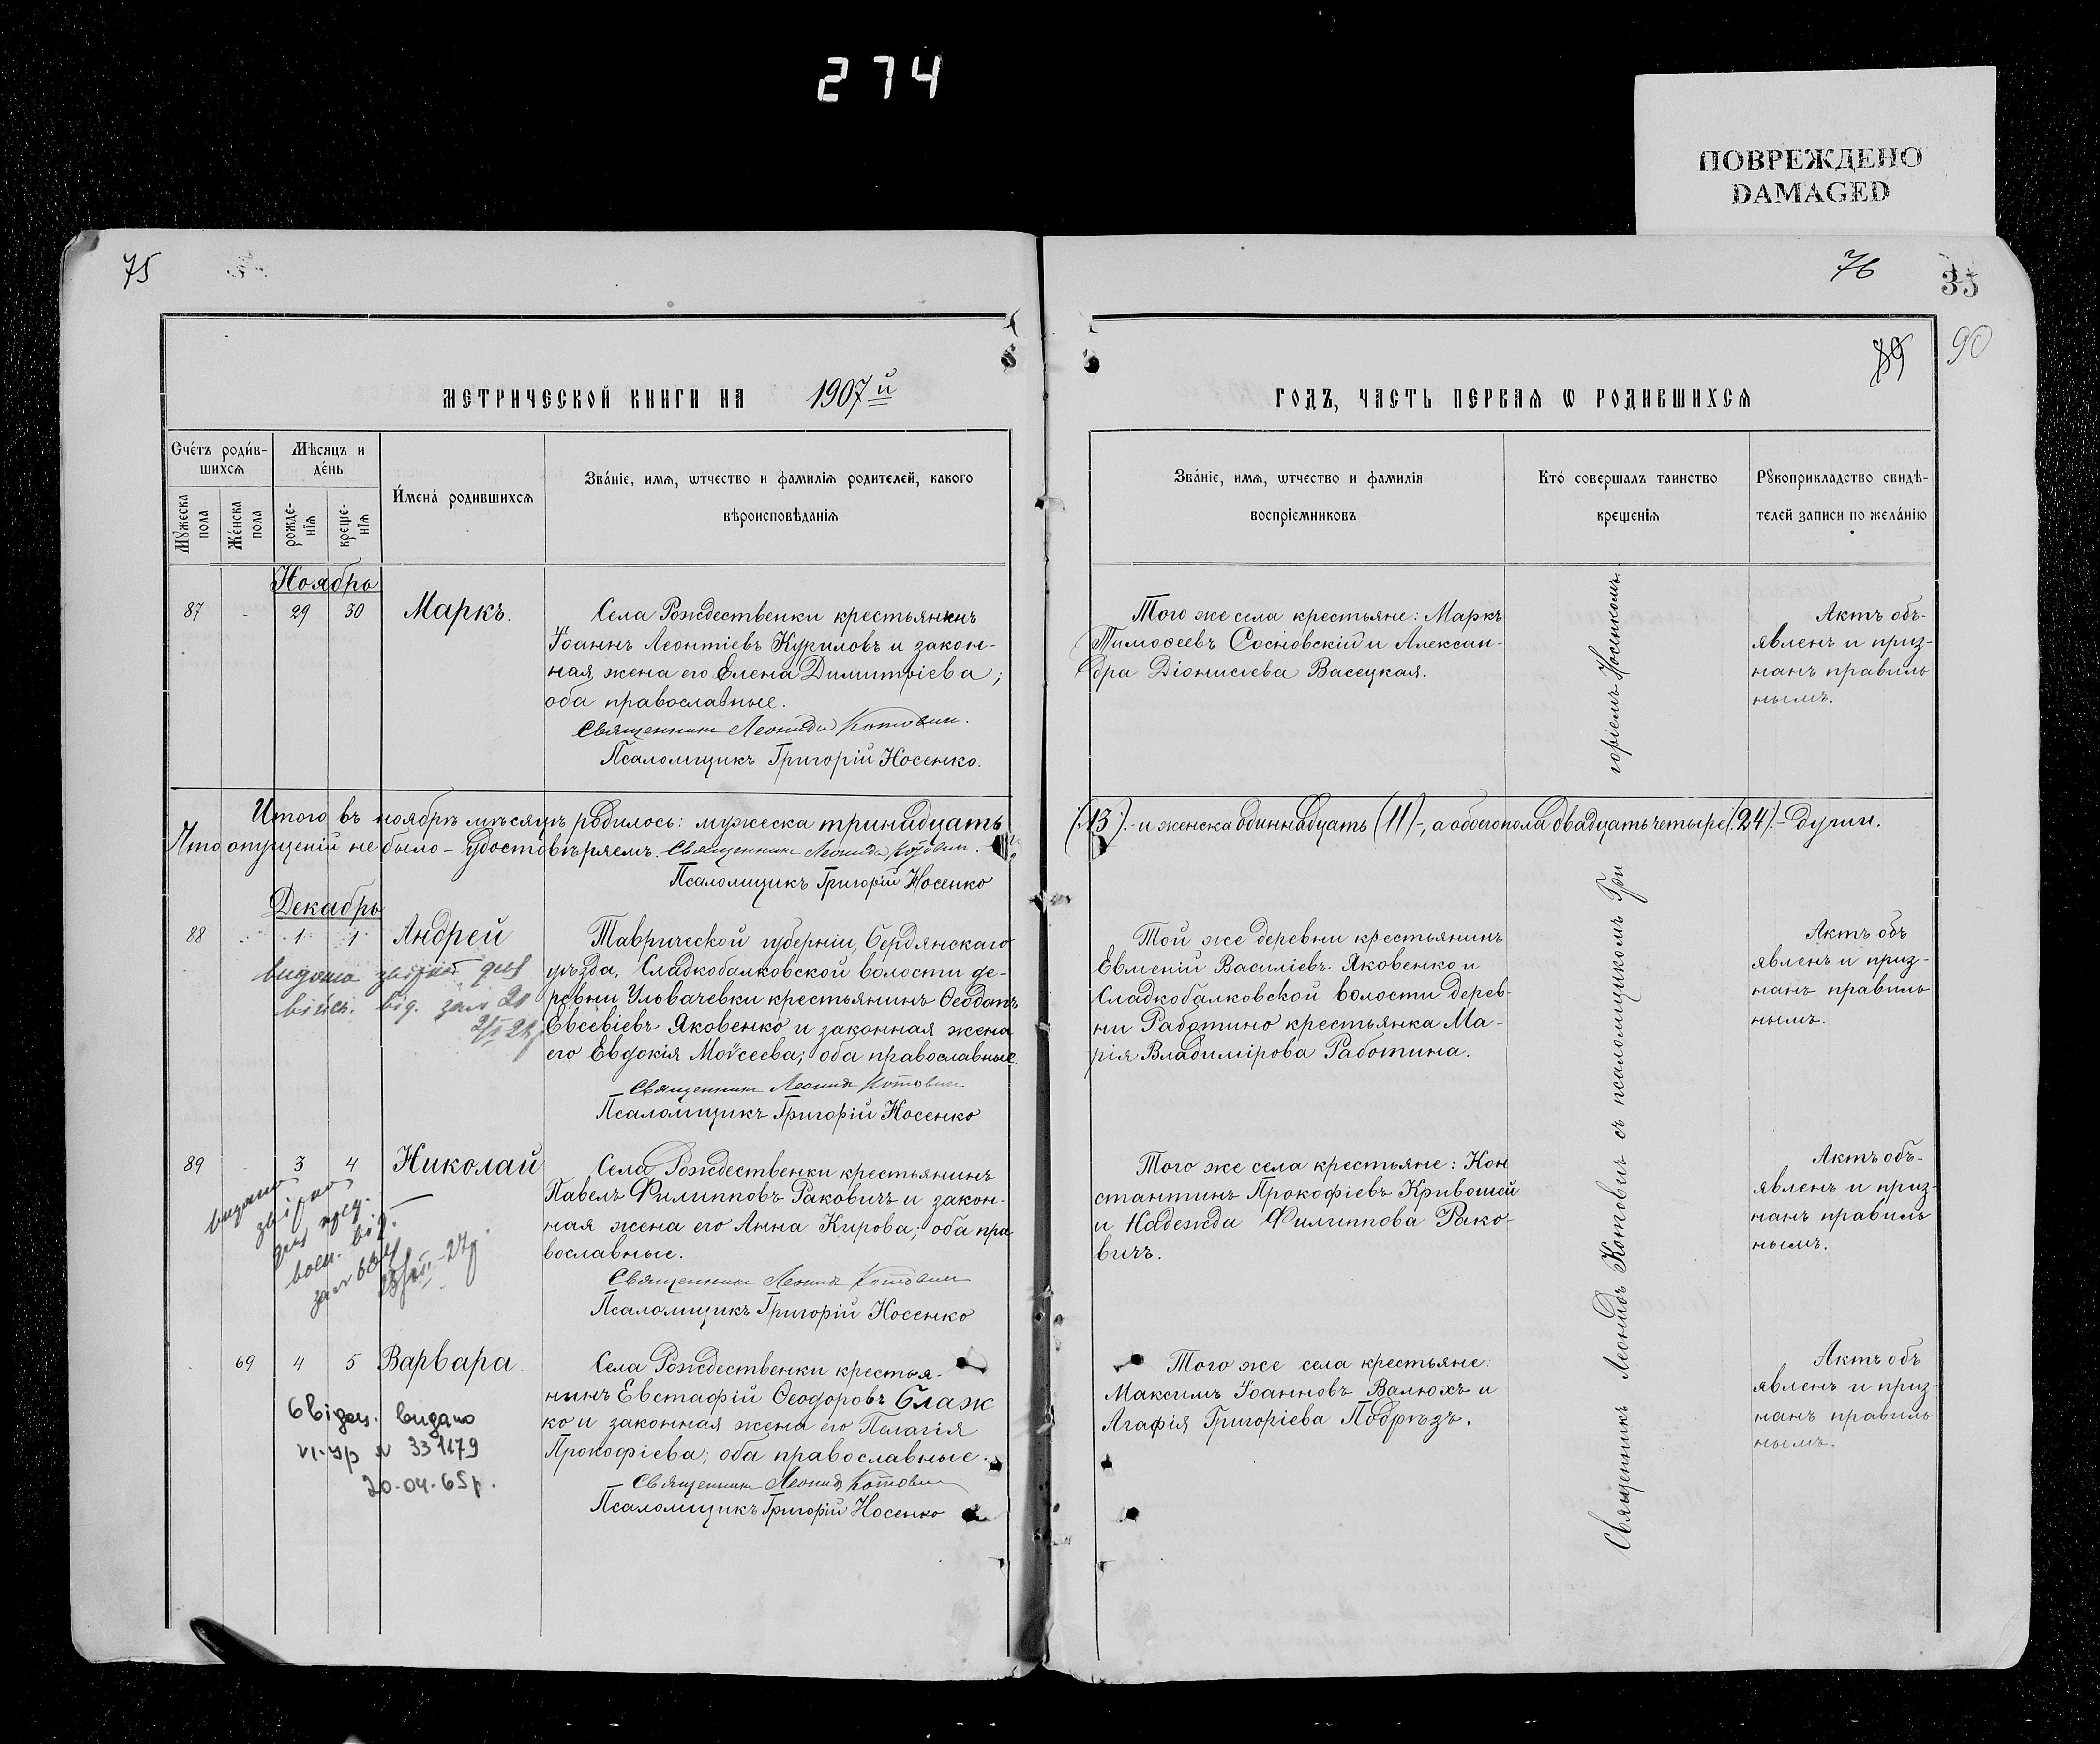 274
ПОВРЕЖДЕНО
DAMAGED
75
76
35
89
90
МЕТРИЧЕСКОЙ КНИГИ НА 1907й
ГОДЪ, ЧАСТЬ ПЕРВАЯ Ѡ РОДИВШИХСЯ
Счéтъ роди́в-
шихсѧ
Мѣсяцъ и
дéнь
Мȣжеска
пола
Жéнска
пола
рожде-
нїѧ
креще-
нїѧ
И́мена́ родившихсѧ
Звáнїе, имѧ, ѡтчество и фамилїѧ родителей, какого
вѣроисповѣданїѧ
Звáнїе, имѧ, ѡтчество и фамилїѧ
воспрїемниковъ
Кто́ совершалъ таинство
крещенїѧ
Рȣкоприкладство свидѣ-
телей записи по желáнїю
Ноябрь
87 - 29 30 Маркъ.
Села Рождественки крестьянинъ
Іоаннъ Леонтіевъ Куриловъ и закон-
ная жена его Елена Димитріева;
оба православные.
Священникъ Леонидъ Котович.
Псаломщикъ Григорій Носенко.
Того же села крестьяне: Маркъ
Тимоѳеевъ Сосновскій и Алексан-
дра Діонисіева Васецкая.
Актъ объ-
явленъ и приз-
нанъ правиль
нымъ.
Итого въ ноябрѣ мѣсяцѣ родилось: мужеска тринадцать
(13).- и женска одиннадцать (11)-, а обоего пола двадцать четыре (24).- души.
Что опущеній не было - удостовѣряемъ. Священникъ Леонидъ Котович.
Псаломщикъ Григорій Носенко
Декабрь
88 1 1 Андрей
видана
війск. від. 20
Таврической губерніи, Бердянскаго
уѣзда, Сладкобалковской волости де-
ревни Ульвачевки крестьянинъ Ѳеодотъ
Евсевіевъ Яковенко и законная жена
его Евдокія Моѵсеева; оба православные.
Священникъ Леонид Котович
Псаломщикъ Григорій Носенко
Той же деревни крестьянинъ
Евменій Василіевъ Яковенко и
Сладкобалковской волости дерев-
ни Работино крестьянка Ма-
рія Владимірова Работина.
Актъ объ
явленъ и приз-
нанъ правиль
нымъ.
89 - 3 4 Николай
видано
Села Рождественки крестьянинъ
Павелъ Филипповъ Раковичъ и закон-
ная жена его Анна Кирова; оба пра
вославные.
Священникъ Леонид Котович
Псаломщикъ Григорій Носенко
Того же села крестьяне: Кон
стантинъ Прокофіевъ Кривошей
и Надежда Филиппова Рако-
вичъ.
Актъ объ-
явленъ и приз-
нанъ правиль
нымъ.
69 4 5 Варвара.
видано
№ 331179
20-04-65р.
Села Рождественки крестья-
нинъ Евстафій Ѳеодоровъ Блаж
ко и законная жена его Пелагія
Прокофіева; оба православные.
Священникъ Леонид Котович
Псаломщикъ Григорій Носенко
Того же села крестьяне:
Максимъ Іоанновъ Валюхъ и
Агафія Григоріева Подрѣзъ.
Актъ объ
явленъ и приз-
нанъ правиль
нымъ.
Священникъ Леонидъ Котовичъ съ псаломщикомъ Григоріемъ Носенкомъ.